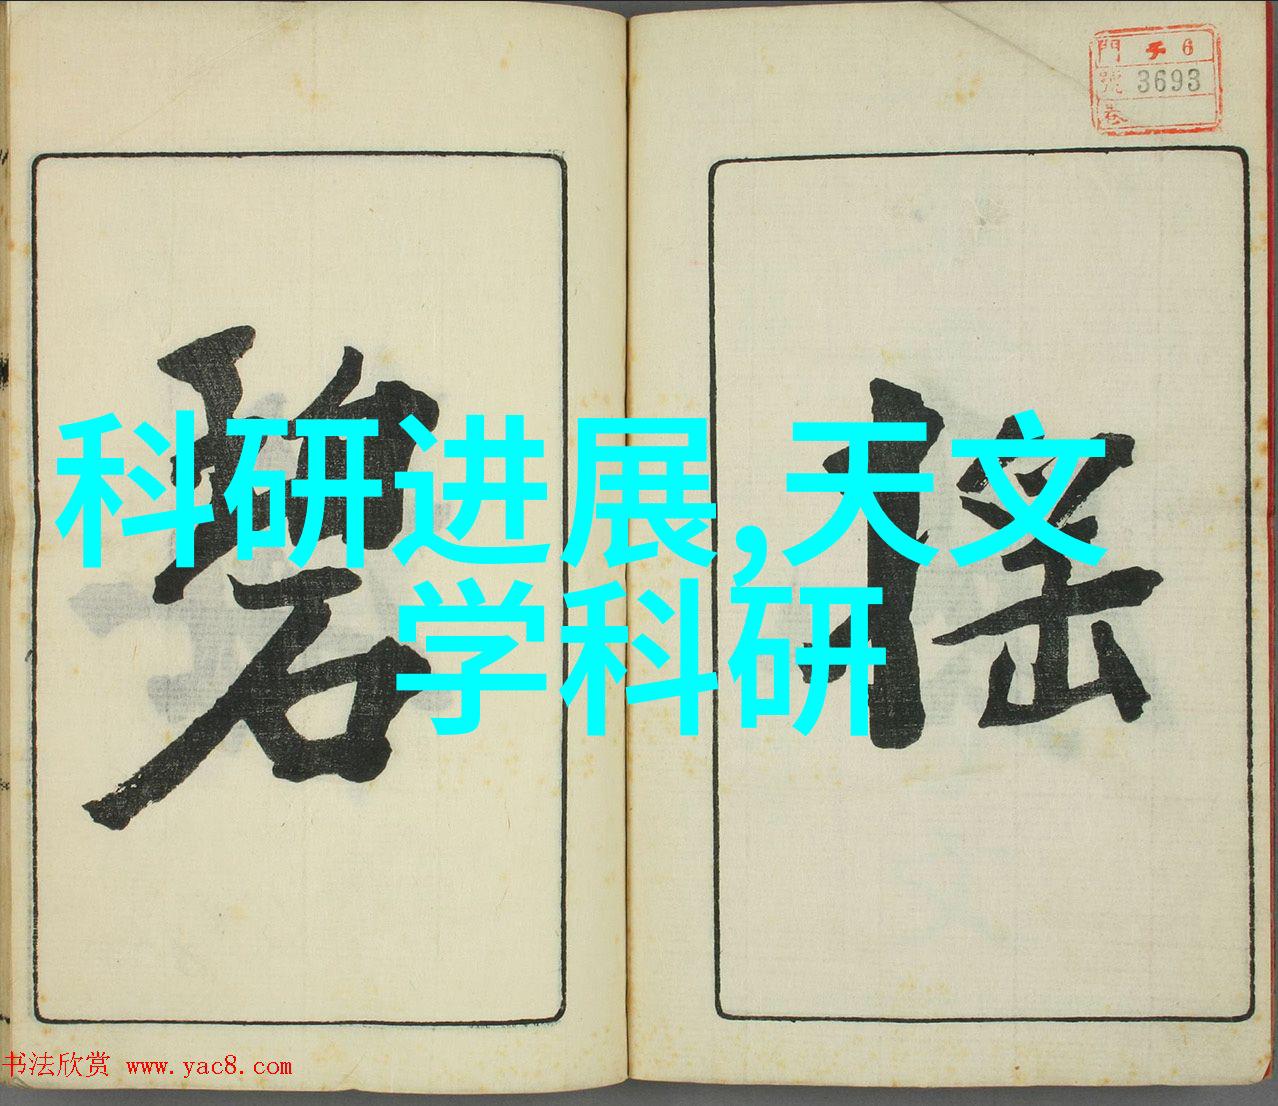 門 チ 6
號 3693
卷
搖
碧
科研进展,天文
学科研
书法欣赏 www.yac8.com